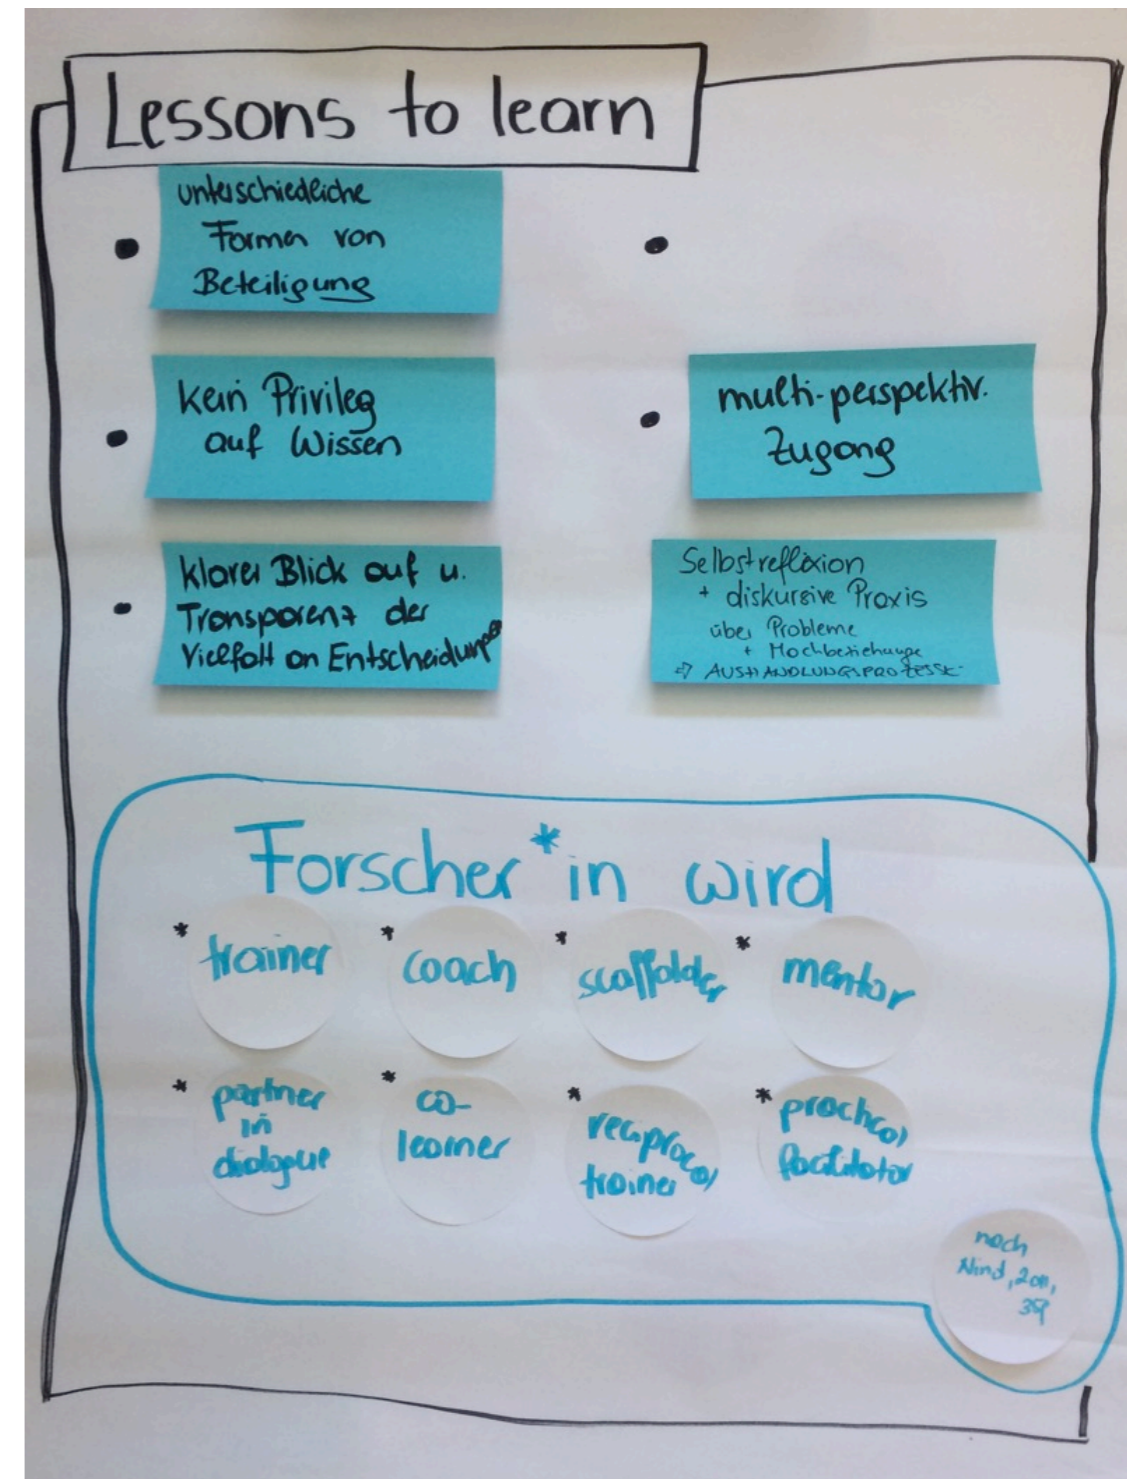 Lessons to learn
unterschiedliche
Formen von
Beteiligung
kein Privileg
auf Wissen
klarer Blick auf u.
Transparenz der
Vielfalt an Entscheidungen
multi-perspektiv.
Zugang
Selbstreflexion
+ diskursive Praxis
über Probleme
+ Machbeziehunge
⇒ AUSHANDLUNGSPROZESSE
Forscher*in wird
* trainer
* coach
* scaffolder
* mentor
* partner
in
dialogue
* co-
learner
* reciprocal
trainer
* practical
facilitator
nach
Nind, 2011,